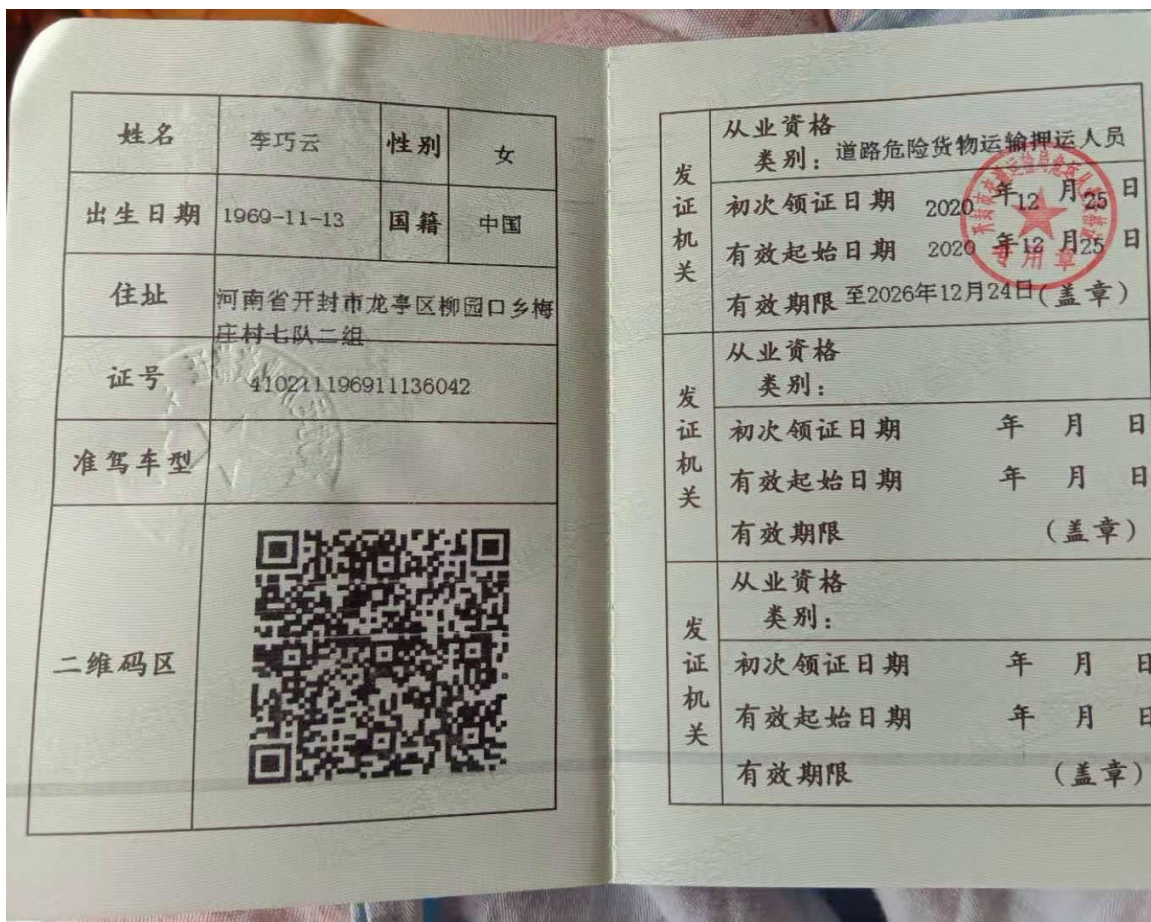 姓名 李巧云 性别 女
出生日期 1969-11-13 国籍 中国
住址 河南省开封市龙亭区柳园口乡梅
庄村七队二组
证号 410211196911136042
准驾车型
二维码区
发证机关
从业资格
类别：道路危险货物运输押运人员
初次领证日期 2020 年 12 月 25 日
有效起始日期 2020 年 12 月 25 日
有效期限 至2026年12月24日(盖章)
专用章
发证机关
从业资格
类别：
初次领证日期 年 月 日
有效起始日期 年 月 日
有效期限 (盖章)
发证机关
从业资格
类别：
初次领证日期 年 月 日
有效起始日期 年 月 日
有效期限 (盖章)